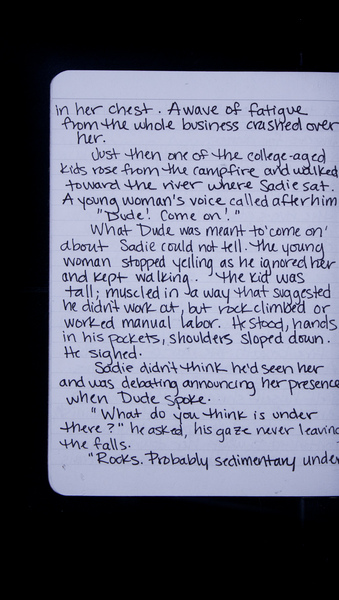 in her chest. A wave of fatigue
from the whole business crashed over
her.
Just then one of the college-aged
kids rose from the campfire and walked
toward the river where Sadie sat.
A young woman's voice called after him
"Dude! Come on!"
What Dude was meant to 'come on'
about Sadie could not tell. The young
woman stopped yelling as he ignored her
and kept walking. The kid was
tall; muscled in a way that suggested
he didn't work at, but rock climbed or
worked manual labor. He stood, hands
in his pockets, shoulders sloped down.
He sighed.
Sadie didn't think he'd seen her
and was debating announcing her presence
when Dude spoke.
"What do you think is under
there?" he asked, his gaze never leaving
the falls.
"Rocks. Probably sedimentary under